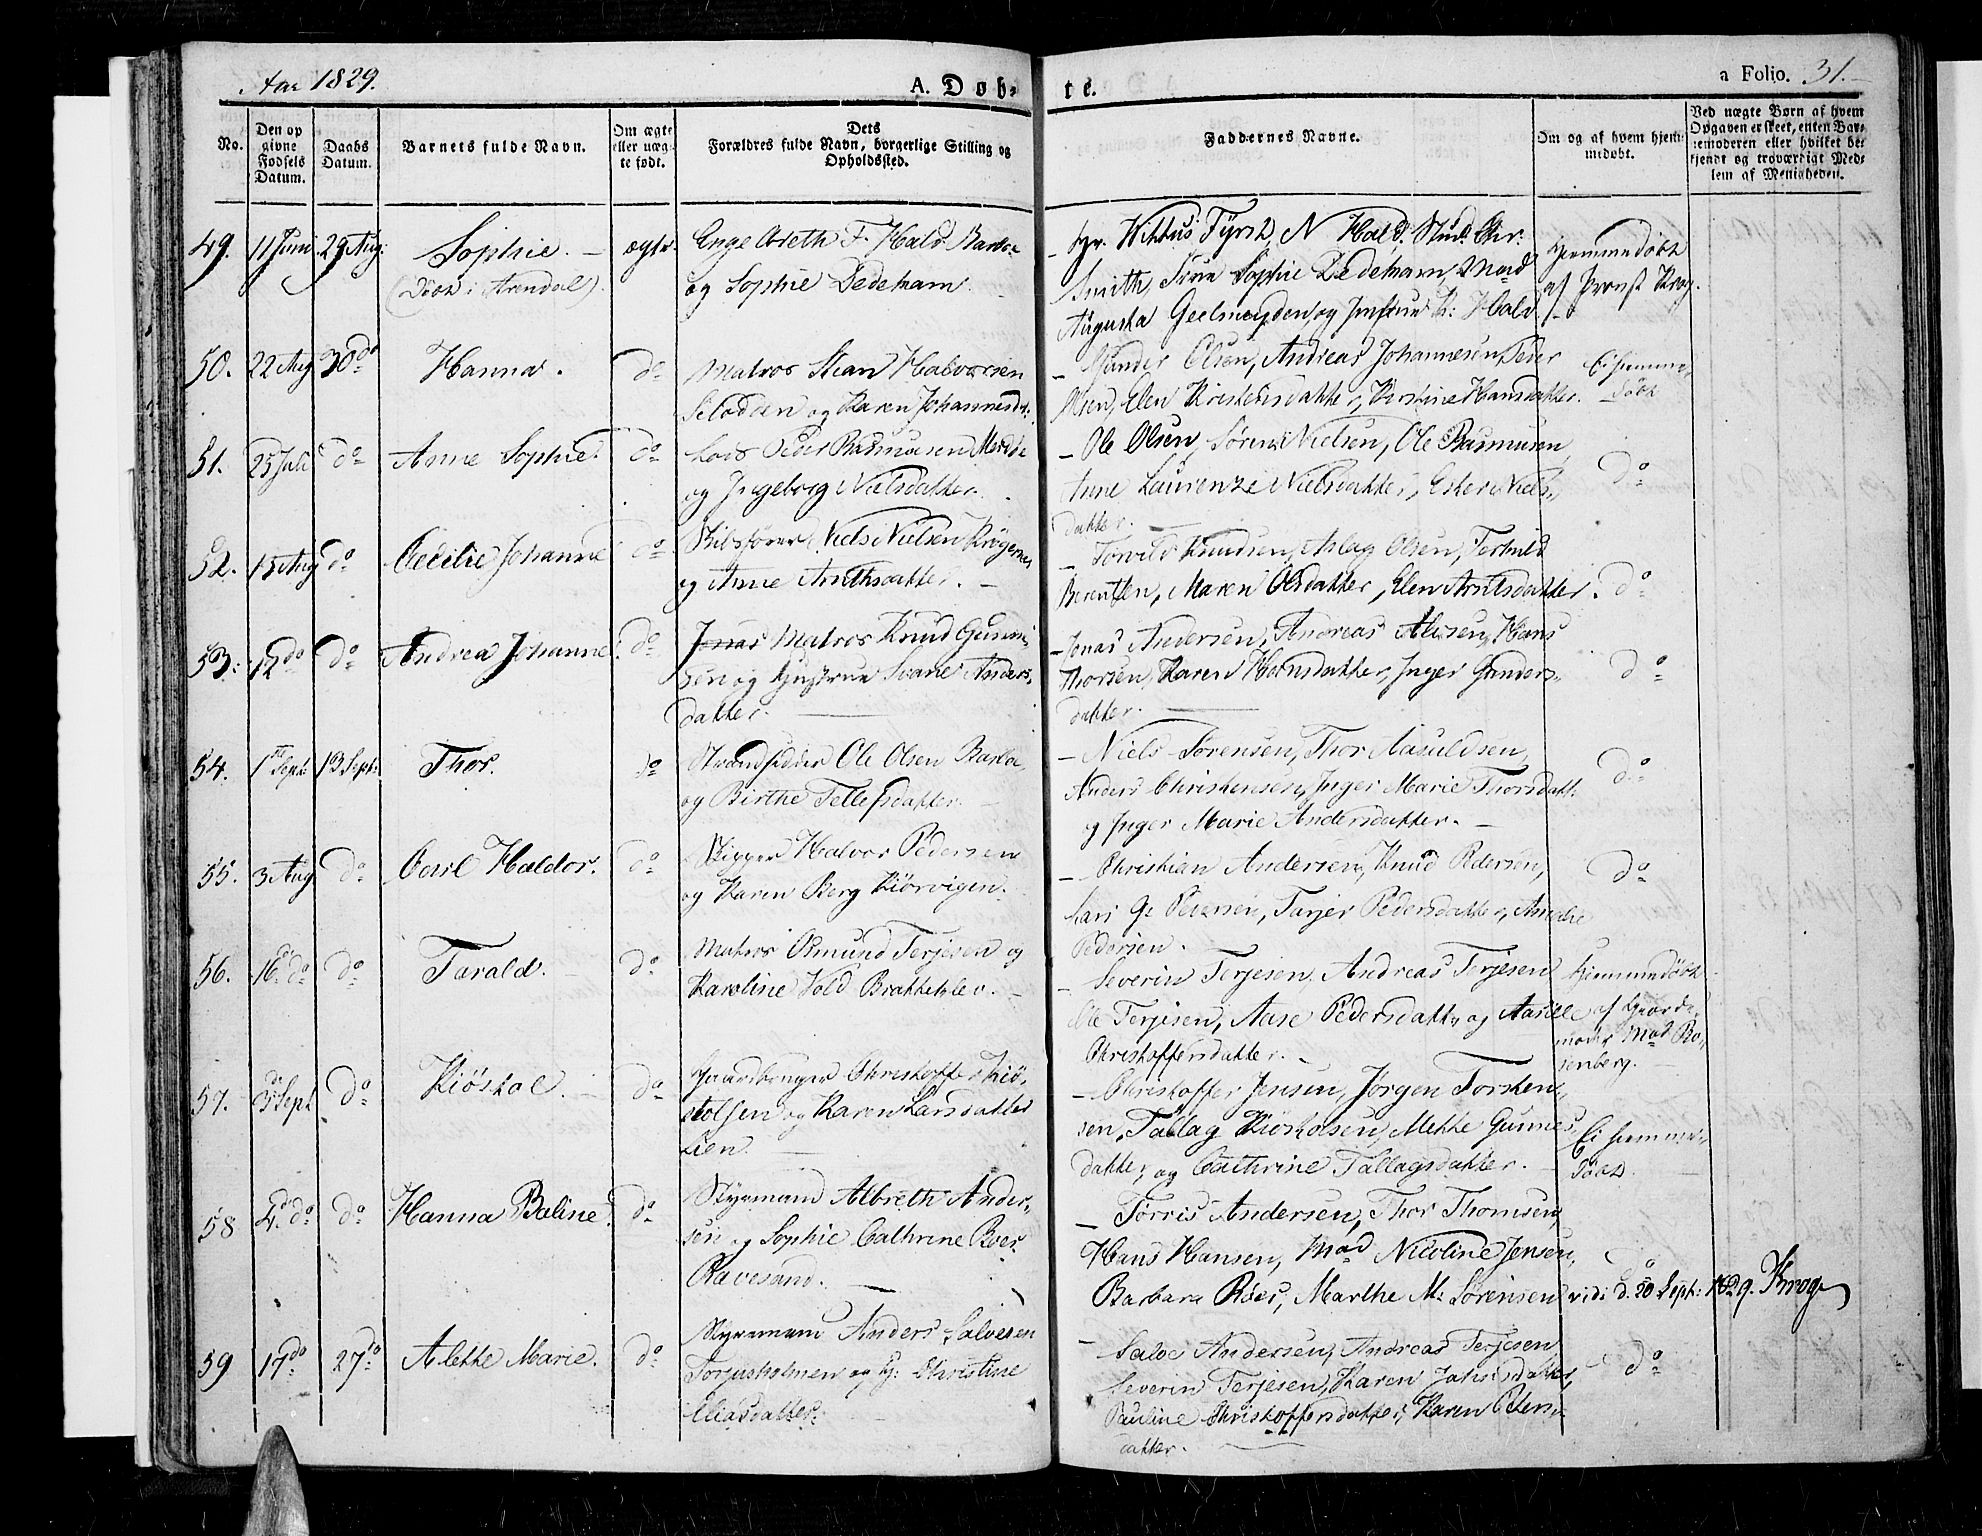 Aar 1829.
A. Døb-
te.
a Folio. 31.
No.
Den op
givne
Fødsels
Datum.
Daabs
Datum.
Barnets fulde Navn.
Om ægte
eller uæg-
te født.
Dets
Forældres fulde Navn, borgerlige Stilling og
Opholdssted.
Faddernes Navne.
Om og af hvem hjem-
medøbt.
Ved uægte Børn af hvem
Opgaven er skeet, enten Bar-
nemoderen eller hvilket be-
kjendt og troværdigt Med-
lem af Menigheden.
49. 11 Juni 29 Aug: Sophie. ægte
(Døbt i Arendal).
F. Hald Barboe
og Sophie Dedekam.
Fürst, N Hald. Stud: Chr:
Smith, Sophie Dedekam, Mad
Augusta Geelmuyden, og Jomfrue K: Hald
Hjemmedøbt
af Provst Krog.
50. 22 Aug 30 do Hanna. do
Matros Halvorsen
og Karen Johannesdt:
Gunder Olsen, Andreas Johannesen, Peder
Olsen, Elen Kristensdatter, Kirstine Hansdatter.
Ei hjemme-
døbt
51. 25 Juli do Anne Sophie. do
Lods Peder Rasmusen
og Ingeborg Nielsdatter.
Ole Olsen, Søren Nielsen, Ole Rasmusen
Anne Laurenze Nielsdatter, Ester Niels-
datter.
do
52. 15 Aug do Cecilie Johanne do
Skibsfører Niels Nielsen Krøgenes
og Anne Arntsdatter.
Torvild Knudsen, Aslag Olsen, Terkild
Berentsen, Maren Olsdatter, Elen Arntsdatter.
do
53. 12 do do Andrea Johanne. do
Jonas Matros Knud Gunni-
sen og Hustrue Svane Anders-
datter.
Jonas Andersen, Andreas Alvsen, Hans
Thorsen, Karen Hornsdatter, Inger Gunders-
datter.
do
54. 1 Sept: 13 Sept: Thor. do
Strandsidder Ole Olsen Barboe
og Birthe Tellefsdatter.
Niels Sørensen, Thor Aasuldsen,
Anders Christensen, Inger Marie Thorsdatt:
og Inger Marie Andersdatter.
do
55. 3 Aug do Carl Haldor. do
Skipper Halvor Pedersen
og Karen Berg Kiörvigen.
Christian Andersen, Knud Pedersen,
Lars G: Petersen, Tarjer Pedersdatter, Amalie
Pedersen.
do
56. 16 do do Tarald. do
Matros Osmund Terjesen og
Karoline Vold Bratteklev.
Severin Terjesen, Andreas Terjesen
Ole Terjesen, Aase Pedersdatt: og Aasille
Christoffersdatter.
hjemmedöbt
af Giorde-
moder Mad Ro-
senberg.
57. 3 Sept do Kiöstol. do
Gaardbruger Christoffer Kiö-
stolsen og Karen Larsdatter
Lien.
Christoffer Jensen, Jørgen Torsten-
sen, Tallag Kiöstolsen, Mette Gunnes-
datter og Cathrine Tallagsdatter.
Ei hjemme-
døbt.
58 4. do do Hanna Boline. do
Styrmand Albreth Ander-
sen og Sophie Cathrine Boer
Ravesand.
Torris Andersen, Thor Thomsen,
Hans Hansen, Mad Nicoline Jensen,
Barbara Roes, Marthe M: Sørensen
do
vidi d. 20 Sept: 1829. Krog
59 17 do 27 do Alette Marie. do
Styrmand Anders Salvesen
Torjusholmen og Hj: Christine
Eliasdatter.
Salve Andersen, Andreas Terjesen
Severin Terjesen, Karen Jahnsdatter,
Pauline Christoffersdatter, Karen Peders-
datter.
do